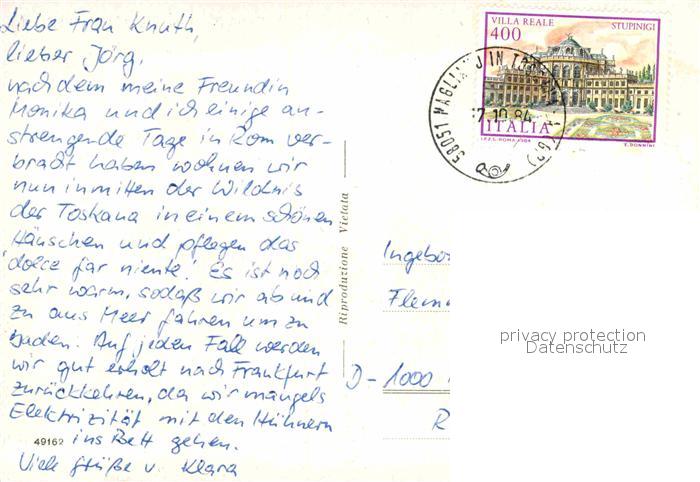 Liebe Frau Knuth,
lieber Jörg,
nachdem meine Freundin
Monika und ich einige an-
strengende Tage in Rom ver-
bracht haben wohnen wir
nun inmitten der Wildnis
der Toskana in einem schönen
Häuschen und pflegen das
'dolce far niente'. Es ist noch
sehr warm, sodaß wir ab und
zu ans Meer fahren um zu
baden. Auf jeden Fall werden
wir gut erholt nach Frankfurt
zurückkehren, da wir mangels
Elektrizität mit den Hühnern
49162 ins Bett gehen.
Viele Grüße v. Klara
Riproduzione Vietata
VILLA REALE STUPINIGI
400
ITALIA
I.P.Z.S. ROMA 1984 E. DONNINI
58051 MAGLIANO IN
17.10.84
Ingebor
Flem
D - 1000
R
privacy protection
Datenschutz